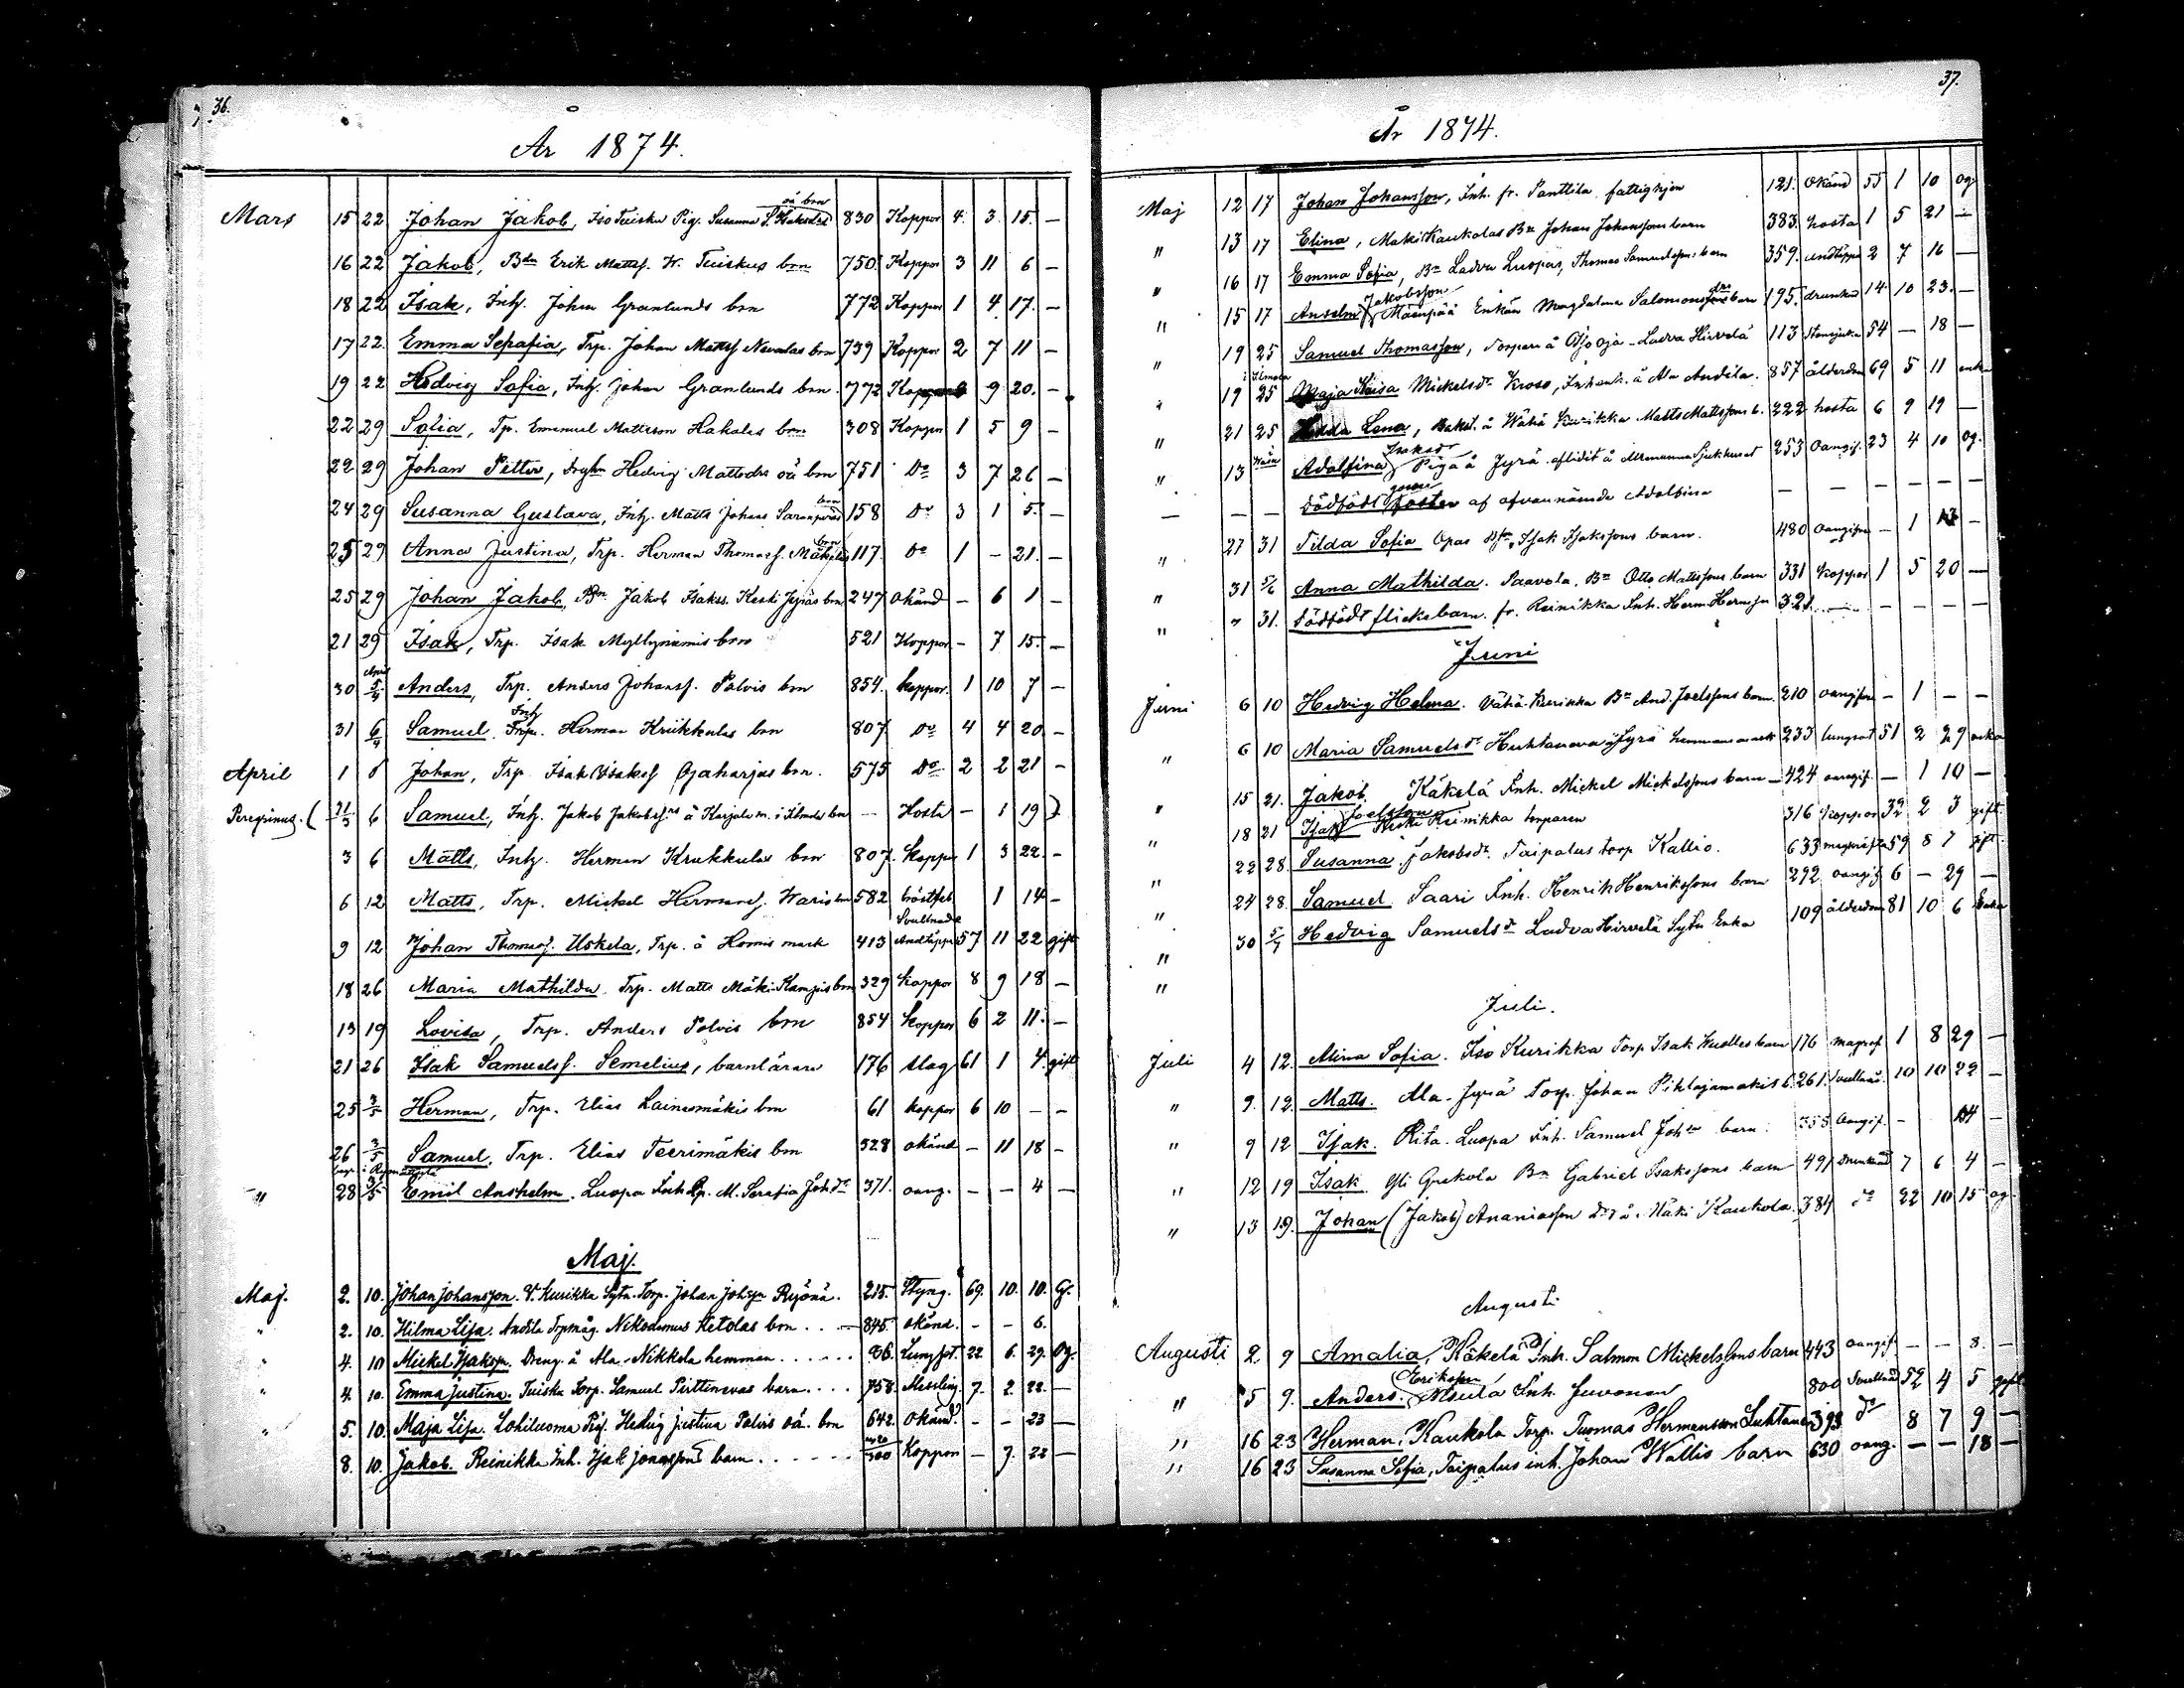 36.
År 1874.
Mars 15 22 Johan Jakob, Iso Tuisku Pig. Susanna S. Haksdrs oä brn 830 Koppor 4. 3. 15. —
16 22 Jakob, Bdn Erik Mattsf. W. Tuiskus brn 750. Koppor 3 11 6 —
18 22 Isak, Inh. Johan Granlunds brn 772 Koppor 1 4 17. —
17 22. Emma Serafia, Trp. Johan Mattsf Nevalas brn 739 Koppor 2 7 11 —
19 22 Hedvig Sofia, Inh. Johan Granlunds brn. 772 9 20. —
22 29 Sofia, Tp. Emanuel Mattsson Hakalas brn 308 Koppor 1 5 9 —
22 29 Johan Petter, Hedvig Mattsdrs oä brn 751 Do 3 7 26 —
24 29 Susanna Gustava, Inh. Matts Johans brn 158 Do 3 1 5. —
25 29 Anna Justina, Trp. Herman Thomasf. brn 117. Do 1 — 21. —
25 29 Johan Jakob, Bdn Jakob Isakss. Keski Jyräs brn 247 okänd — 6 1 —
21 29 Isak, Trp. Isak Myllyniemis brn 521 Koppor — 7 15. —
30 April 5/4 Anders, Trp. Anders Johansf. Polvis brn 854. koppor. 1 10 7 —
31 6/4 Samuel. Inh. Herman Krukkulas brn 807 Do 4 4 20 —
April 1 6 Johan, Trp. Isak Isaksf Ojaharjus brn. 575 Do 2 2 21 —
Peregrinus. ( 31/3 6 Samuel, Inh. Jakob Jakobsf. å i Ilmola brn — Hosta — 1 19 )
3 6 Matts, Inh. Herman Krukkulas brn 807. koppor 1 3 22. —
6 12 Matts, Trp. Mickel Hermansf. Waris brn 582 bröstfeb 1 14 —
9 12 Johan Thomasf. Uskela, Trp. å Homis mark 413 Svullnad & Andtäppa 57 11 22 gift
18 26 Maria Mathilda Trp. Matts Mäki-Kampis brn 329 koppor 8 9 18 —
13 19 Lovisa, Trp. Anders Polvis brn 854 koppor 6 2 11. —
21 26 Isak Samuelsf. Semelius, barnlärare 176 slag 61 1 4. gift
25 3/5 Herman, Trp. Elias Lainesmäkis brn 61 koppor 6 10 — —
26 3/5 Samuel, Trp. Elias Teerimäkis brn 328 okänd — 11 18 —
" 28 3/5 Emil Anshelm. Luopa Inh. M. Serafia Johdr 371. oang. — — 4 —
Maj.
Maj. 2. 10. Johan Johansson. V. Kurikka Sytn. Torp. Johan Johsson Ryönä. 215. Styng. 69. 10. 10. G.
" 2. 10. Hilma Lisa. Andila Trpmåg. Nikodemus Ketolas brn . . — 845. okänd. — — 6.
" 4. 10 Mickel Isaksson. Dreng. å Ala-Nikkola hemman . . . . . . 86. Lungsot. 22. 6. 29. Og.
" 4. 10. Emma Justina. Tuisku Torp. Samuel Pirttinevas barn . . . . 758. Messling. 7. 2. 22. —
" 5. 10. Maja Lisa. Lohiluoma Pig. Hedvig Justina Polvis oä. brn 642. Okänd. — — 23 —
8. 10. Jakob. Reinikka Inh. Isak Jonassons barn . . . . . . 300 Koppor — 7. 22 —
37.
År 1874.
Maj 12 17 Johan Johansson, Inh. fr. Panttila fattighjon 121. okänd 55 1 10 og
" 13 17 Elina, Mäki Kaukolas Bn Johan Johanssons barn 383. hosta 1 5 21 —
" 16 17 Emma Sofia, Bn Ladva Luopas, Thomas Samuelssons barn 359. andtäppa 2 7 16 —
" 15 17 Anselm Jakobsson Mäenpää Enkan Magdalena Salomonsdrs barn 195. drunknad 14. 10 23. —
" 19 25 Samuel Thomasson, Torpare å - Ladva Hirvelä 113 54 — 18 —
" 19 25 i Ilmola Maja Kaisa Mickelsdr Kroso, å Ala Andila. 857 ålderdom 69 5 11 enka
" 21 25 Hilda Lena, å Wähä Kurikka Matts Mattssons b. 222 hosta 6 9 19 —
" 13 Wasa Adolfina Isaksdr Piga å Jyrä aflidit å Allmänna Sjukhuset 253 Oangif. 23 4 10 og.
— — — dödfödt gosse foster af ofvannämnde Adolfina — — — — — —
" 27 31 Tilda Sofia Opas Isak Isakssons barn. 480 oangifven — 1 13 —
" 31 5/6 Anna Mathilda. Paavola. Bn Otto Mattssons barn 331 koppor 1 5 20 —
" " 31. dödfödt flickebarn. fr. Reinikka Inh. Herm. Hermsson 321. — — — — —
Juni
Juni 6 10 Hedvig Helena. Vähä Kurikka Bn And. Joelssons barn. 210 oangifven — 1 — —
" 6 10 Maria Samuelsdr Huhtaneva å Jyrä hemmans mark 233 lungsot 51 2 29 enka
" 15 21. Jakob. Käkelä Inh. Mickel Mickelssons barn — 424 oangif. — 1 10 —
" 18 21 Isak Joelsson Keski Reinikka torpare 316 koppor 32 2 3 gift.
" 22 28. Susanna Jakobsdr. Taipalus torp Kallio. 633 magkräfta 59 8 7 gift.
" 24 28. Samuel. Saari Inh. Henrik Henrikssons barn 292 oangif 6 — 29 —
" 30 5/7 Hedvig Samuelsdr Ladva Hirvelä Sytn Enka 109 ålderdom 81 10 6 Enka
"
Juli.
Juli 4 12. Mina Sofia. Iso Kurikka Torp Isak barn 176 magref 1 8 29 —
" 9. 12. Matts. Ala-Jyrä Torp. Johan Pihlajamäkis b. 261. svullnad. 10 10 22 —
" 9 12 Isak. Rita-Luopa Inh. Samuel Johsn barn. 358 Oangif. — 14 —
" 12 19 Isak. Yli Bn Gabriel Isakssons barn 491 drunknad 7 6 4 —
" 13 19. Johan (Jakob) Ananiasson å Mäki Kaukola. 384 do 22 10 15 og.
Augusti
Augusti 2. 9 Amalia, Käkelä Inh. Salmon Mickelssons barn 443 oangif — — 8. —
" 5 9. Anders. Eriksson Inh. Juvonen 800 Svullnad 52 4 5 gift
" 16 23 Herman, Kaukola Torp. Tuomas Hermansson Luhtanen 393 do 8 7 9 —
" 16 23 Susanna Sofia, Taipalus inh. Johan Wallis barn 630 oang. — — 18 —